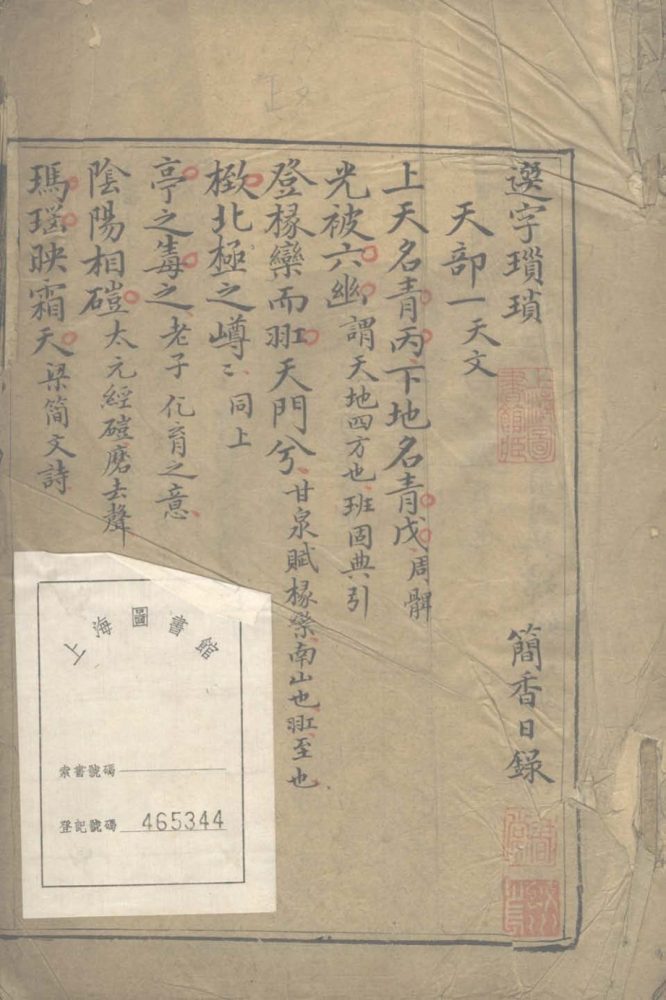 選字瑣瑣 簡香日錄
天部一 天文
上天名青丙下地名青戊 周髀
光被六幽 謂天地四方也 班固典引
登椽欒而羾天門兮 甘泉賦 椽欒南山也 羾至也
橃北極之嶟〻 同上
亭之毒之 老子 化育之意
陰陽相磑 太元經 磑磨去聲
瑪瑙映霜天 梁簡文詩
上海圖書館
索書號碼
登記號碼 465344
上海圖書館藏